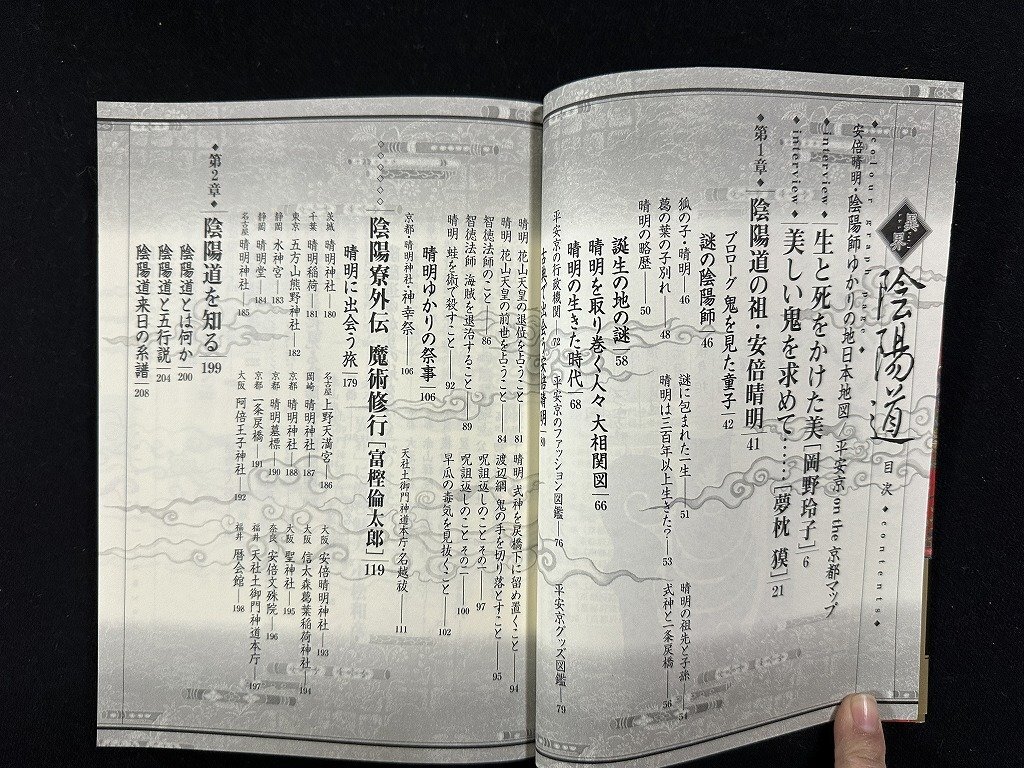 異界
陰陽道
目次◆contents◆
◆colour graph page◆
安倍晴明・陰陽師ゆかりの地日本地図／平安京 on the 京都マップ
◆interview◆生と死をかけた美［岡野玲子］6
◆interview◆美しい鬼を求めて……［夢枕 獏］21
◆第1章◆陰陽道の祖・安倍晴明 41
プロローグ 鬼を見た童子 42
謎の陰陽師 46
狐の子・晴明—46
謎に包まれた一生—51
晴明の祖先と子孫—54
葛の葉の子別れ—48
晴明は三百年以上生きた？—53
式神と一条戻橋—56
晴明の略歴—50
誕生の地の謎 58
晴明を取り巻く人々 大相関図 66
晴明の生きた時代 68
平安京の行政機関—72
平安京のファッション図鑑—76
平安京グッズ図鑑—79
古典で出会う安倍晴明 80
晴明 花山天皇の退位を占うこと—81
晴明 式神を戻橋下に留め置くこと—94
晴明 花山天皇の前世を占うこと—84
渡辺綱 鬼の手を切り落とすこと—95
智徳法師のこと—86
呪詛返しのこと その一—97
智徳法師 海賊を退治すること—89
呪詛返しのこと その二—100
晴明 蛙を術で殺すこと—92
早瓜の毒気を見抜くこと—102
晴明ゆかりの祭事 106
京都・晴明神社・神幸祭—106
天社土御門神道本庁・名越祓—111
◇◇◇◇◇陰陽寮外伝 魔術修行［富樫倫太郎］119
晴明に出会う旅 179
茨城 晴明神社—180
名古屋 上野天満宮—186
大阪 安倍晴明神社—193
千葉 晴明稲荷—181
岡崎 晴明神社—187
大阪 信太森葛葉稲荷神社—194
東京 五方山熊野神社—182
京都 晴明神社—188
大阪 聖神社—195
静岡 水神宮—183
京都 晴明墓標—190
奈良 安倍文殊院—196
静岡 晴明堂—184
京都 一条戻橋—191
福井 天社土御門神道本庁—197
名古屋 晴明神社—185
大阪 阿倍王子神社—192
福井 暦会館—198
◆第2章◆陰陽道を知る 199
陰陽道とは何か 200
陰陽道と五行説 204
陰陽道来日の系譜 208